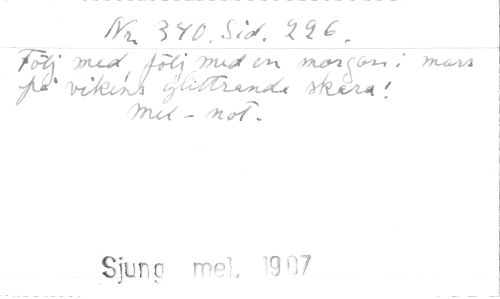 Nr. 340. Sid. 226.
Följ med, följ med en morgon i mars
på vikens glittrande skara!
Mel-not.
Sjung mel. 1907